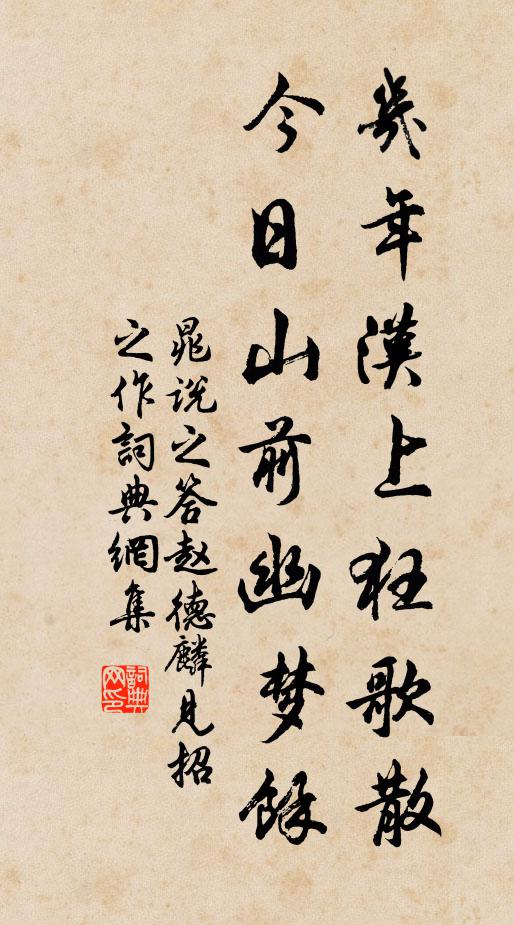 幾年漢上狂歌散
今日山前幽梦餘
晁说之答赵德麟見招
之作詞典網集
詞典
网印